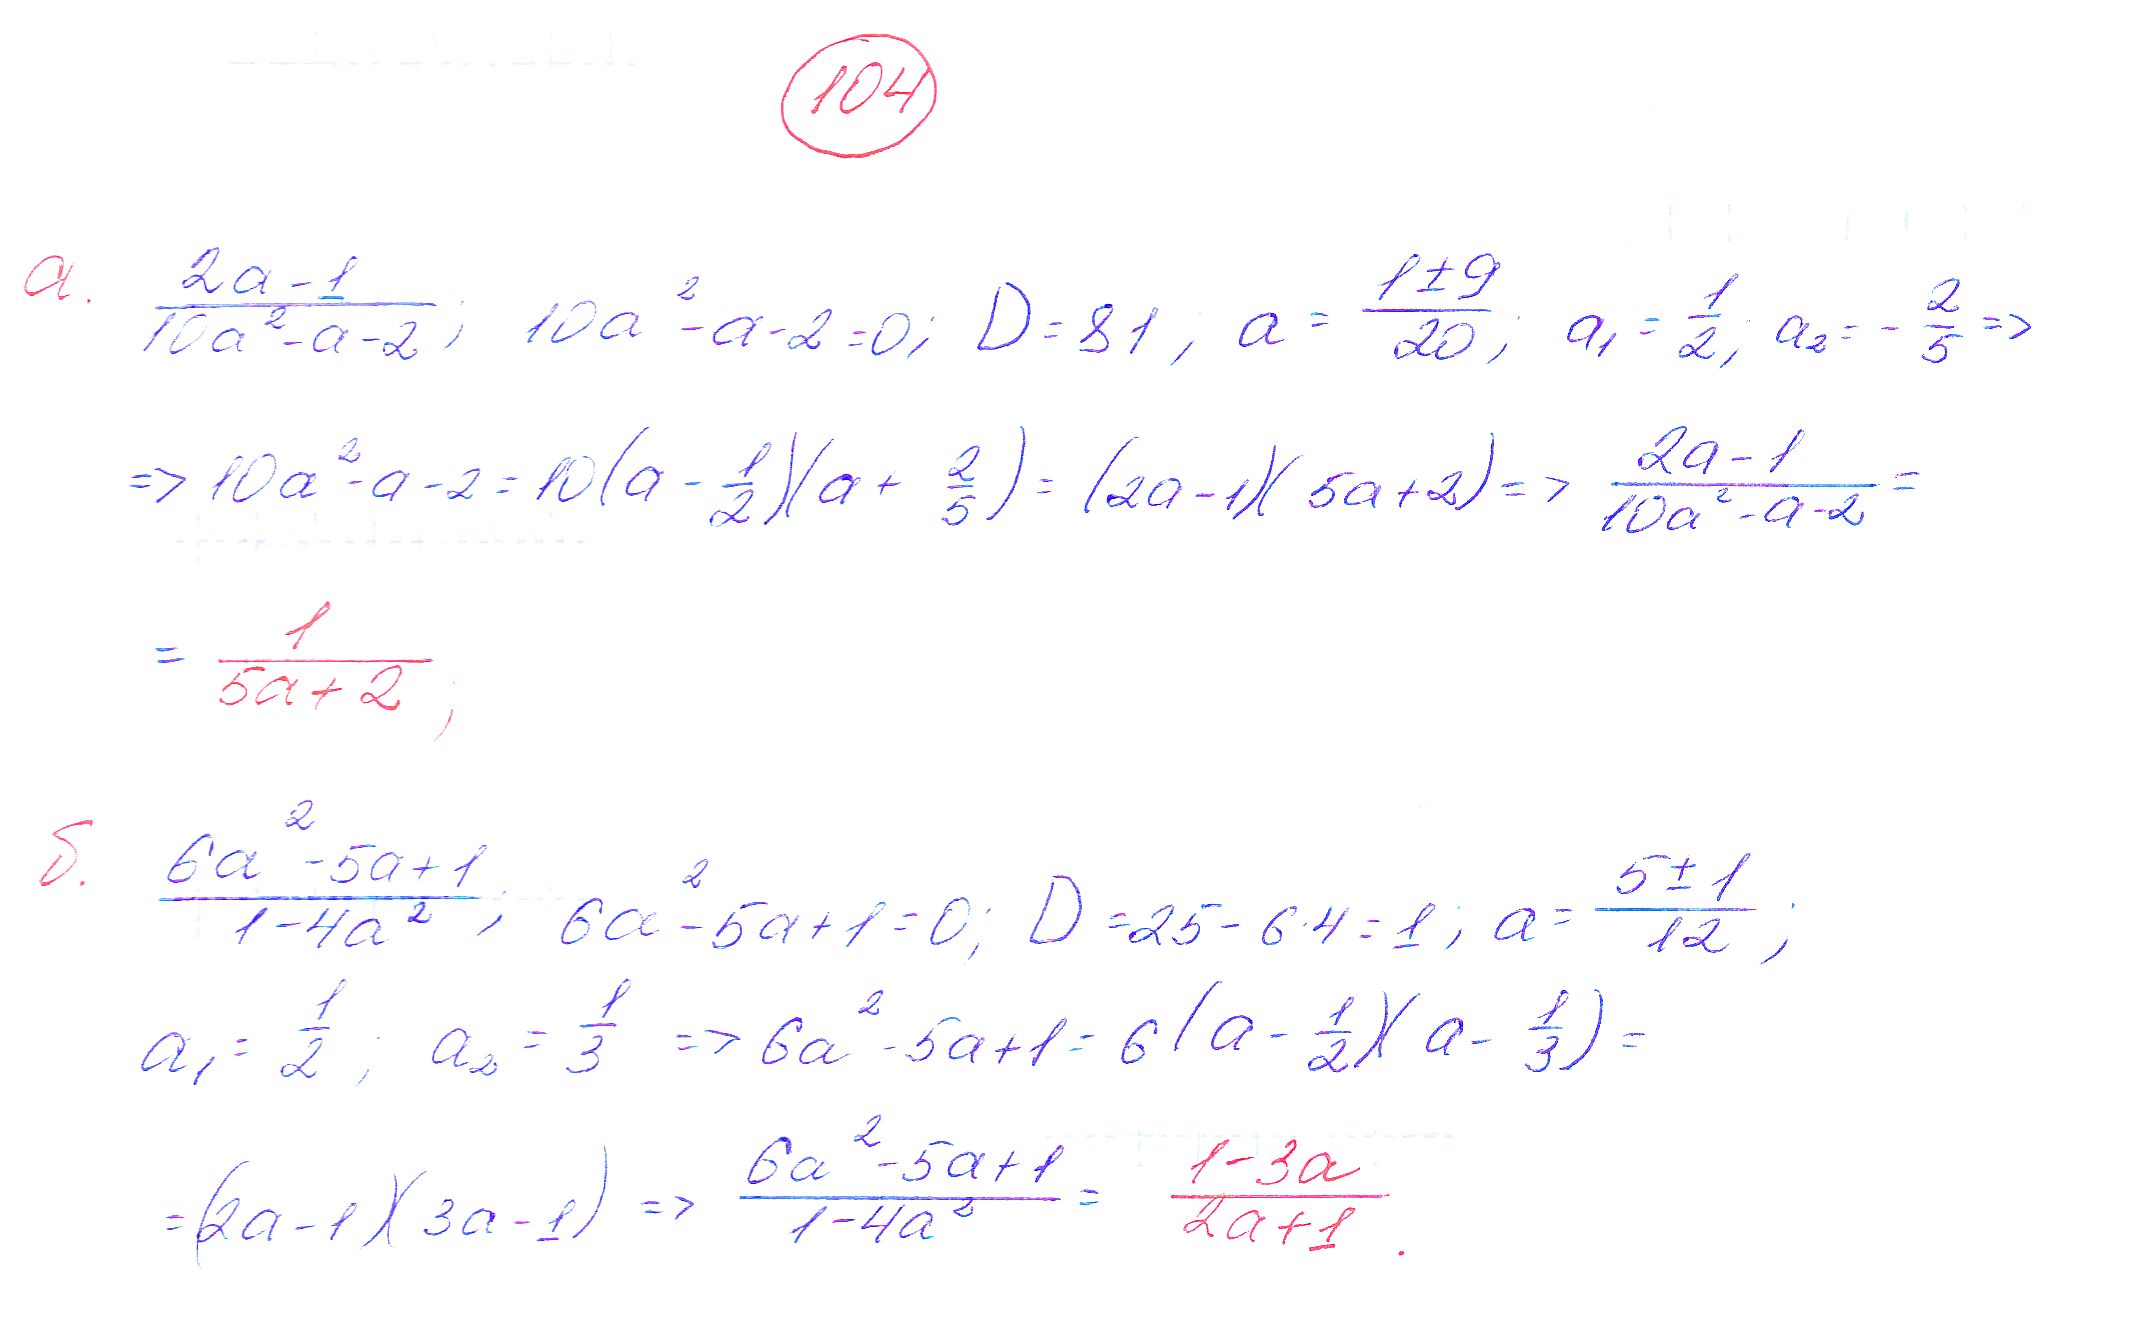 104
а. (2a-1)/(10a²-a-2); 10a²-a-2=0; D=81; a=(1±9)/20; a₁=1/2; a₂=-2/5 =>
=> 10a²-a-2=10(a-1/2)(a+2/5)=(2a-1)(5a+2)=> (2a-1)/(10a²-a-2)=
= 1/(5a+2);
б. (6a²-5a+1)/(1-4a²); 6a²-5a+1=0; D=25-6·4=1; a=(5±1)/12;
a₁=1/2; a₂=1/3 => 6a²-5a+1=6(a-1/2)(a-1/3)=
=(2a-1)(3a-1) => (6a²-5a+1)/(1-4a²)= (1-3a)/(2a+1).